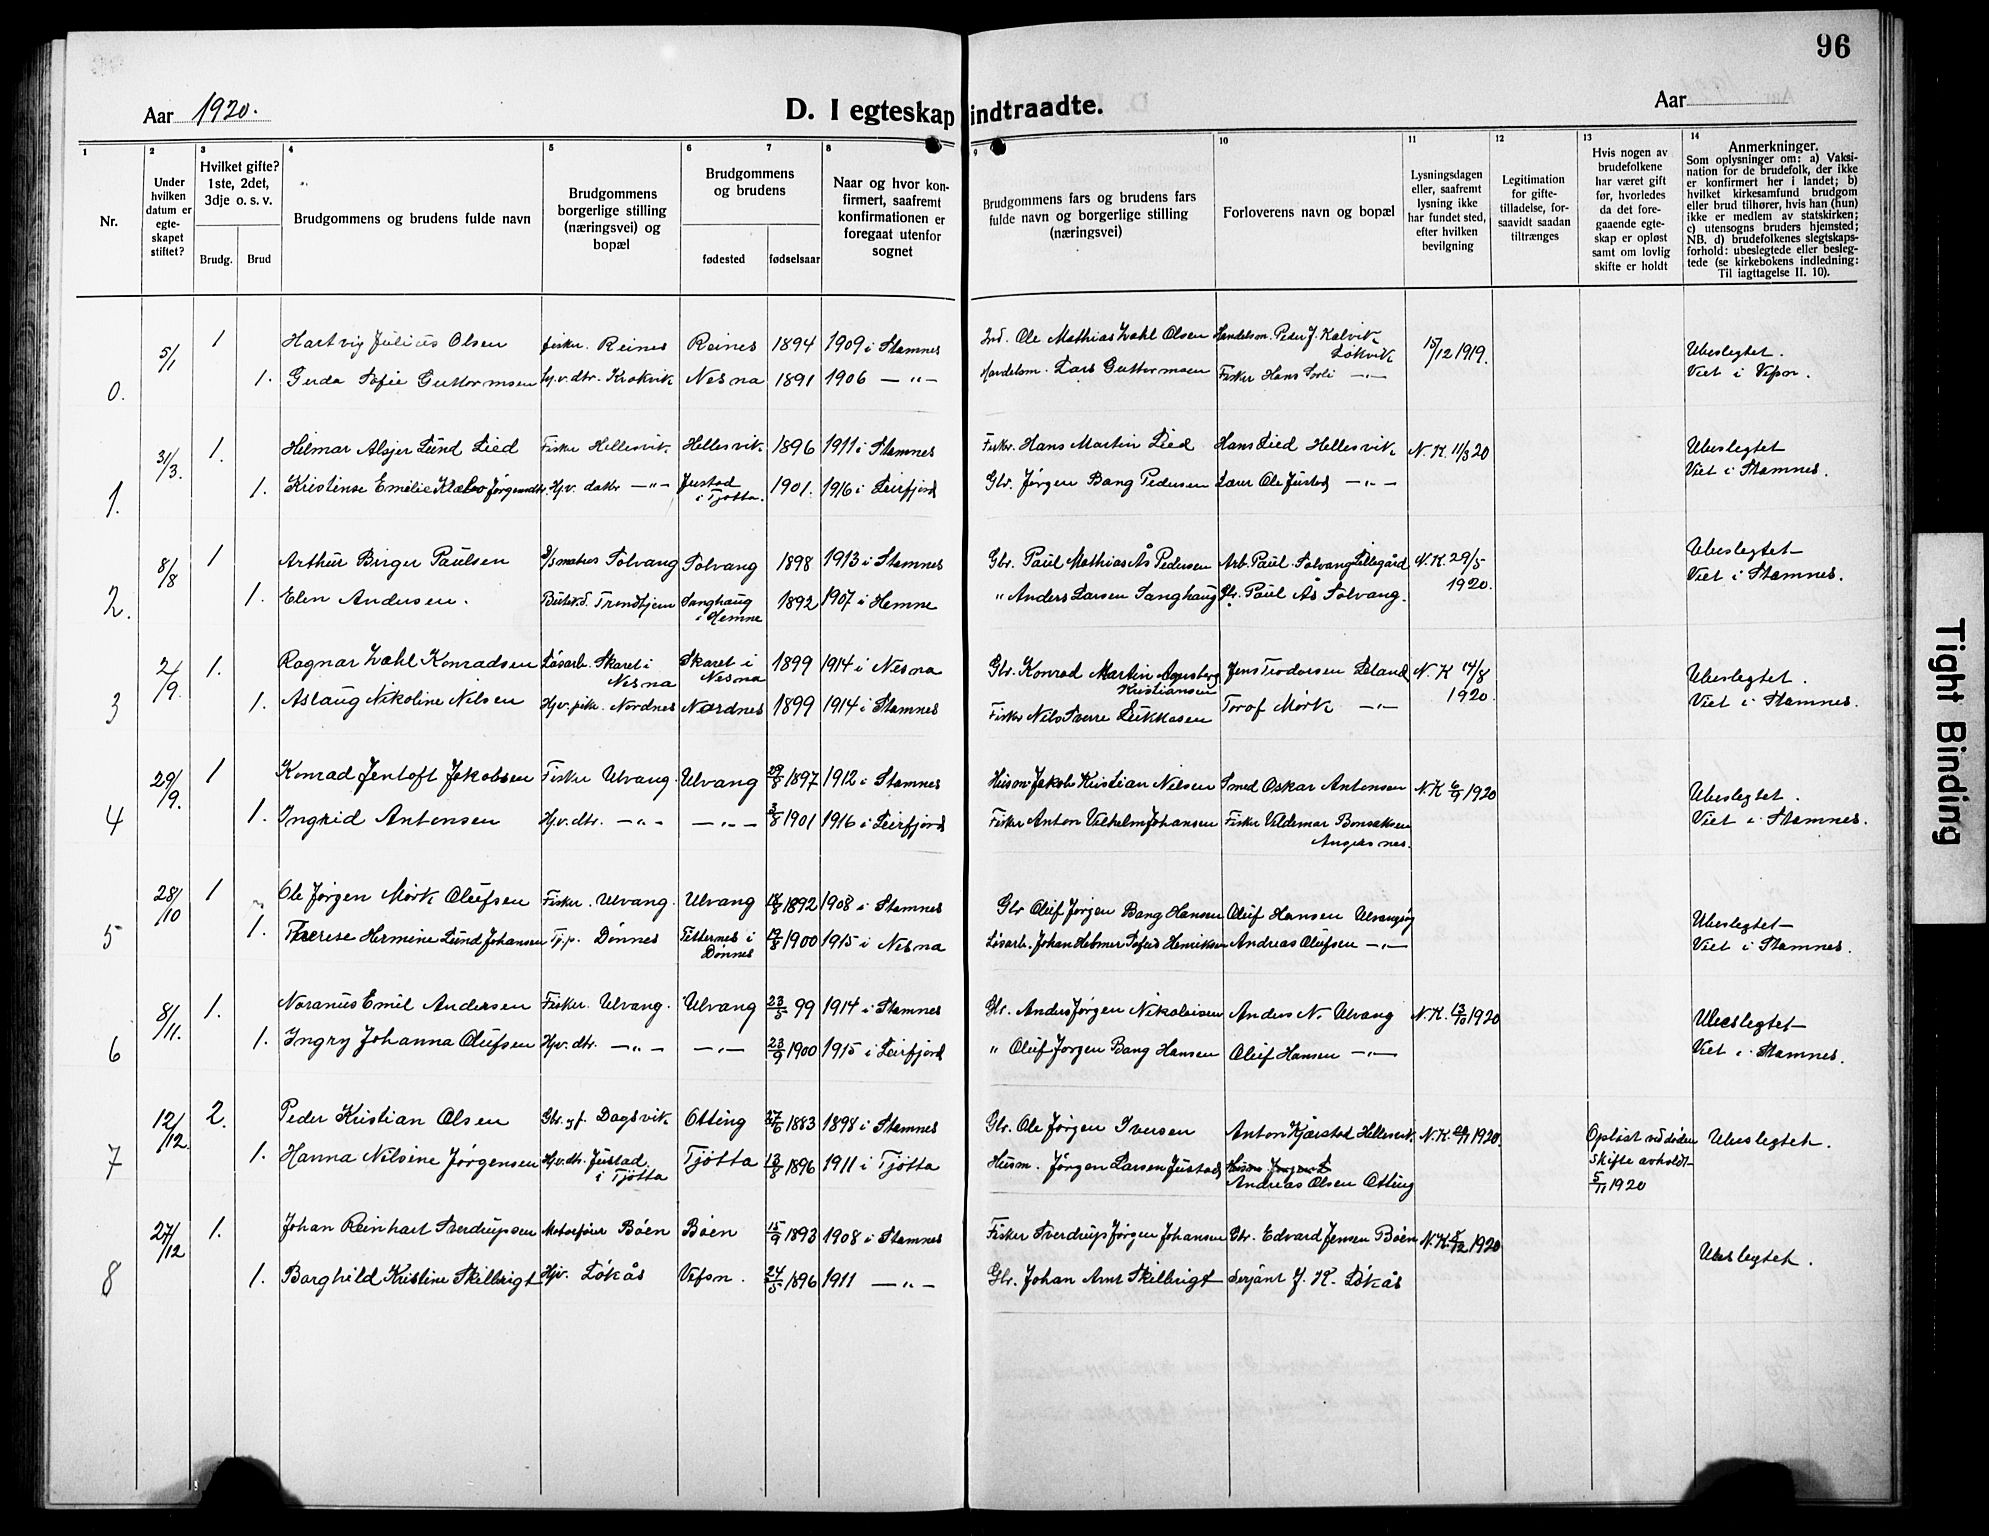 96
Aar 1920.
D. I egteskap indtraadte.
Aar
1 2 3 4 5 6 7 8 9 10 11 12 13 14
Nr.
Under hvilken datum er egteskapet stiftet?
Hvilket gifte? 1ste, 2det, 3dje o. s. v.
Brudg. Brud
Brudgommens og brudens fulde navn
Brudgommens borgerlige stilling (næringsvei) og bopæl
Brudgommens og brudens
fødested fødselsaar
Naar og hvor konfirmert, saafremt konfirmationen er foregaat utenfor sognet
Brudgommens fars og brudens fars fulde navn og borgerlige stilling (næringsvei)
Forloverens navn og bopæl
Lysningsdagen eller, saafremt lysning ikke har fundet sted, efter hvilken bevilgning
Legitimation for giftetilladelse, forsaavidt saadan tiltrænges
Hvis nogen av brudefolkene har været gift før, hvorledes da det foregaaende egteskap er opløst samt om lovlig skifte er holdt
Anmerkninger.
Som oplysninger om: a) Vaksination for de brudefolk, der ikke er konfirmert her i landet; b) hvilket kirkesamfund brudgom eller brud tilhører, hvis han (hun) ikke er medlem av statskirken; c) utensogns bruders hjemsted; NB. d) brudefolkenes slegtskapsforhold: ubeslegtede eller beslegtede (se kirkebokens indledning: Til iagttagelse II. 10).
0. 5/1 1 Hartvig Julius Olsen fisker. Reines Reines 1894 1909 i Stamnes Ind. Ole Mathias Zahl Olsen Handelsm. Peder J. Kalvik Løkvik 15/12 1919. Ubeslegtet.
1. Gerda Sofie Guttormsen hj.v.dtr. Krokvik Nesna 1891 1906 — " — Handelsm. Lars Guttormsen Fisker Hans Sorli — " — Viet i Vefsn.
1. 31/3. 1. Hilmar Alsjer Lund Lied Fisker Hellesvik Hellesvik 1896 1911 i Stamnes Fisker. Hans Martin Lied Hans Lied Hellesvik N. K. 11/3 20 Ubeslegtet
1. Kristense Emelie Klæbo Jørgensdtr. Hj.v. datter — " — Justad i Tjøtta. 1901. 1916 i Leirfjord Gbr. Jørgen Bang Pedersen Lærer Ole Justad — " — Viet i Stamnes.
2. 8/8 1 Arthur Birger Paulsen matros Solvang Solvang 1898 1913 i Stamnes Gbr. Paul Mathias Ås Pedersen Arb. Paul Solvang Lillegård N. K. 29/5 1920. Ubeslegtet
1. Elen Andersen. Butikd. Trondhjem Sanghaug i Hemne 1892 1907 i Hemne " Anders Larsen Sanghaug Gbr. Paul Ås Solvang. Viet i Stamnes.
3 2/9. 1. Ragnar Zahl Konradsen Løsarb. Skaret i Nesna Skaret i Nesna 1899 1914 i Nesna Gbr. Konrad Martin Kristiansen Jens Teodorsen Leland N. K 14/8 1920. Ubeslegtet.
1. Aslaug Nikoline Nilsen Hj.v. pike. Nordnes Nordnes 1899 1914 i Stamnes Fisker Nils Sverre Lukkasen Torof Mørk — " — Viet i Stamnes.
4 29/9. 1 Konrad Jentoft Jakobsen Fisker Ulvang. Ulvang 29/8 1897 1912 i Stamnes Husm. Jakob Kristian Nilsen Smed Oskar Antonsen N. K 6/9 1920 Ubeslegtet.
1. Ingrid Antonsen Hj.v.dtr. — " — — " — 3/8 1901 1916 i Leirfjord Fisker Anton Vilhelm Johansen Fisker Valdemar Bonsaksen Angersnes. Viet i Stamnes.
5 28/10 1 Ole Jørgen Mørk Olufsen Fisker. Ulvang. Ulvang 18/8 1892 1908 i Stamnes Gbr Oluf Jørgen Bang Hansen Oluf Hansen Ulvangsøy Ubeslegtet
1. Therese Hermine Lund Johansen Tj.p. Dønnes Titternes i Dønnes 19/8 1900 1915 i Nesna Løsarb. Johan Helmer Sofus Henriksen Andreas Olufsen — " — Viet i Stamnes.
6 8/11. 1. Noranus Emil Andersen Fisker. Ulvang. Ulvang 23/5 99 1914 i Stamnes Gbr. Anders Jørgen Nikolaisen Anders N. Ulvang N. K. 13/10 1920 Ubeslegtet
1. Ingry Johanna Olufsen Hj.v. dtr. — " — — " — 23/9 1900 1915 i Leirfjord " Oluf Jørgen Bang Hansen Oluf Hansen — " — Viet i Stamnes.
7 12/12 2. Peder Kristian Olsen Gbr. og f. Dagsvik Otting 27/6 1883 1898 i Stamnes Gbr. Ole Jørgen Iversen Anton Kjærstad Hellesvik. N. K. 1920. Opløst ved døden Skifte avholdt 5/11 1920 Ubeslegtet.
1. Hanna Nilsine Jørgensen Hj.v.dtr. Justad i Tjøtta Tjøtta 13/8 1896 1911 i Tjøtta Husm. Jørgen Larsen Justad Andreas Olsen Otting
8 27/12 1. Johan Reinhart Sverdrupsen Motorfører Bøen Bøen 15/9 1893 1908 i Stamnes Fisker Sverdrup Jørgen Johansen Gbr. Edvard Jensen Bøen N. K. 1920 Ubeslegtet.
1. Borghild Kristine Skilbrigt Hjv. Løkås Vefsn. 24/5 1896 1911 — " — Gbr. Johan Arnt Skilbrigt Serjant J. K. Løkås
Tight Binding